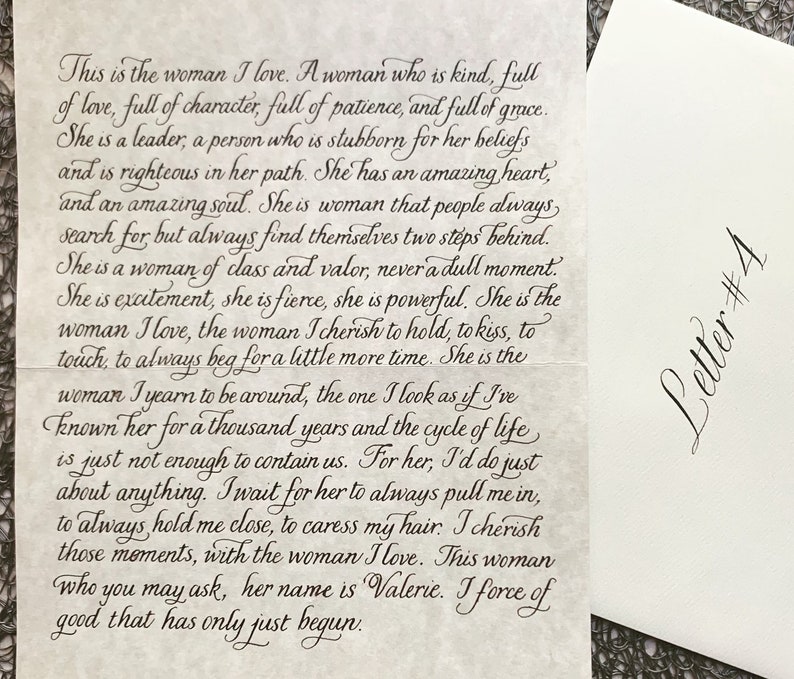 This is the woman I love. A woman who is kind, full
of love, full of character, full of patience, and full of grace.
She is a leader, a person who is stubborn for her beliefs
and is righteous in her path. She has an amazing heart,
and an amazing soul. She is woman that people always
search for but always find themselves two steps behind.
She is a woman of class and valor, never a dull moment.
She is excitement, she is fierce, she is powerful. She is the
woman I love, the woman I cherish to hold, to kiss, to
touch, to always beg for a little more time. She is the
woman I yearn to be around, the one I look as if I've
known her for a thousand years and the cycle of life
is just not enough to contain us. For her, I'd do just
about anything. I wait for her to always pull me in,
to always hold me close, to caress my hair. I cherish
those moments, with the woman I love. This woman
who you may ask, her name is Valerie. I force of
good that has only just begun.
Letter #4